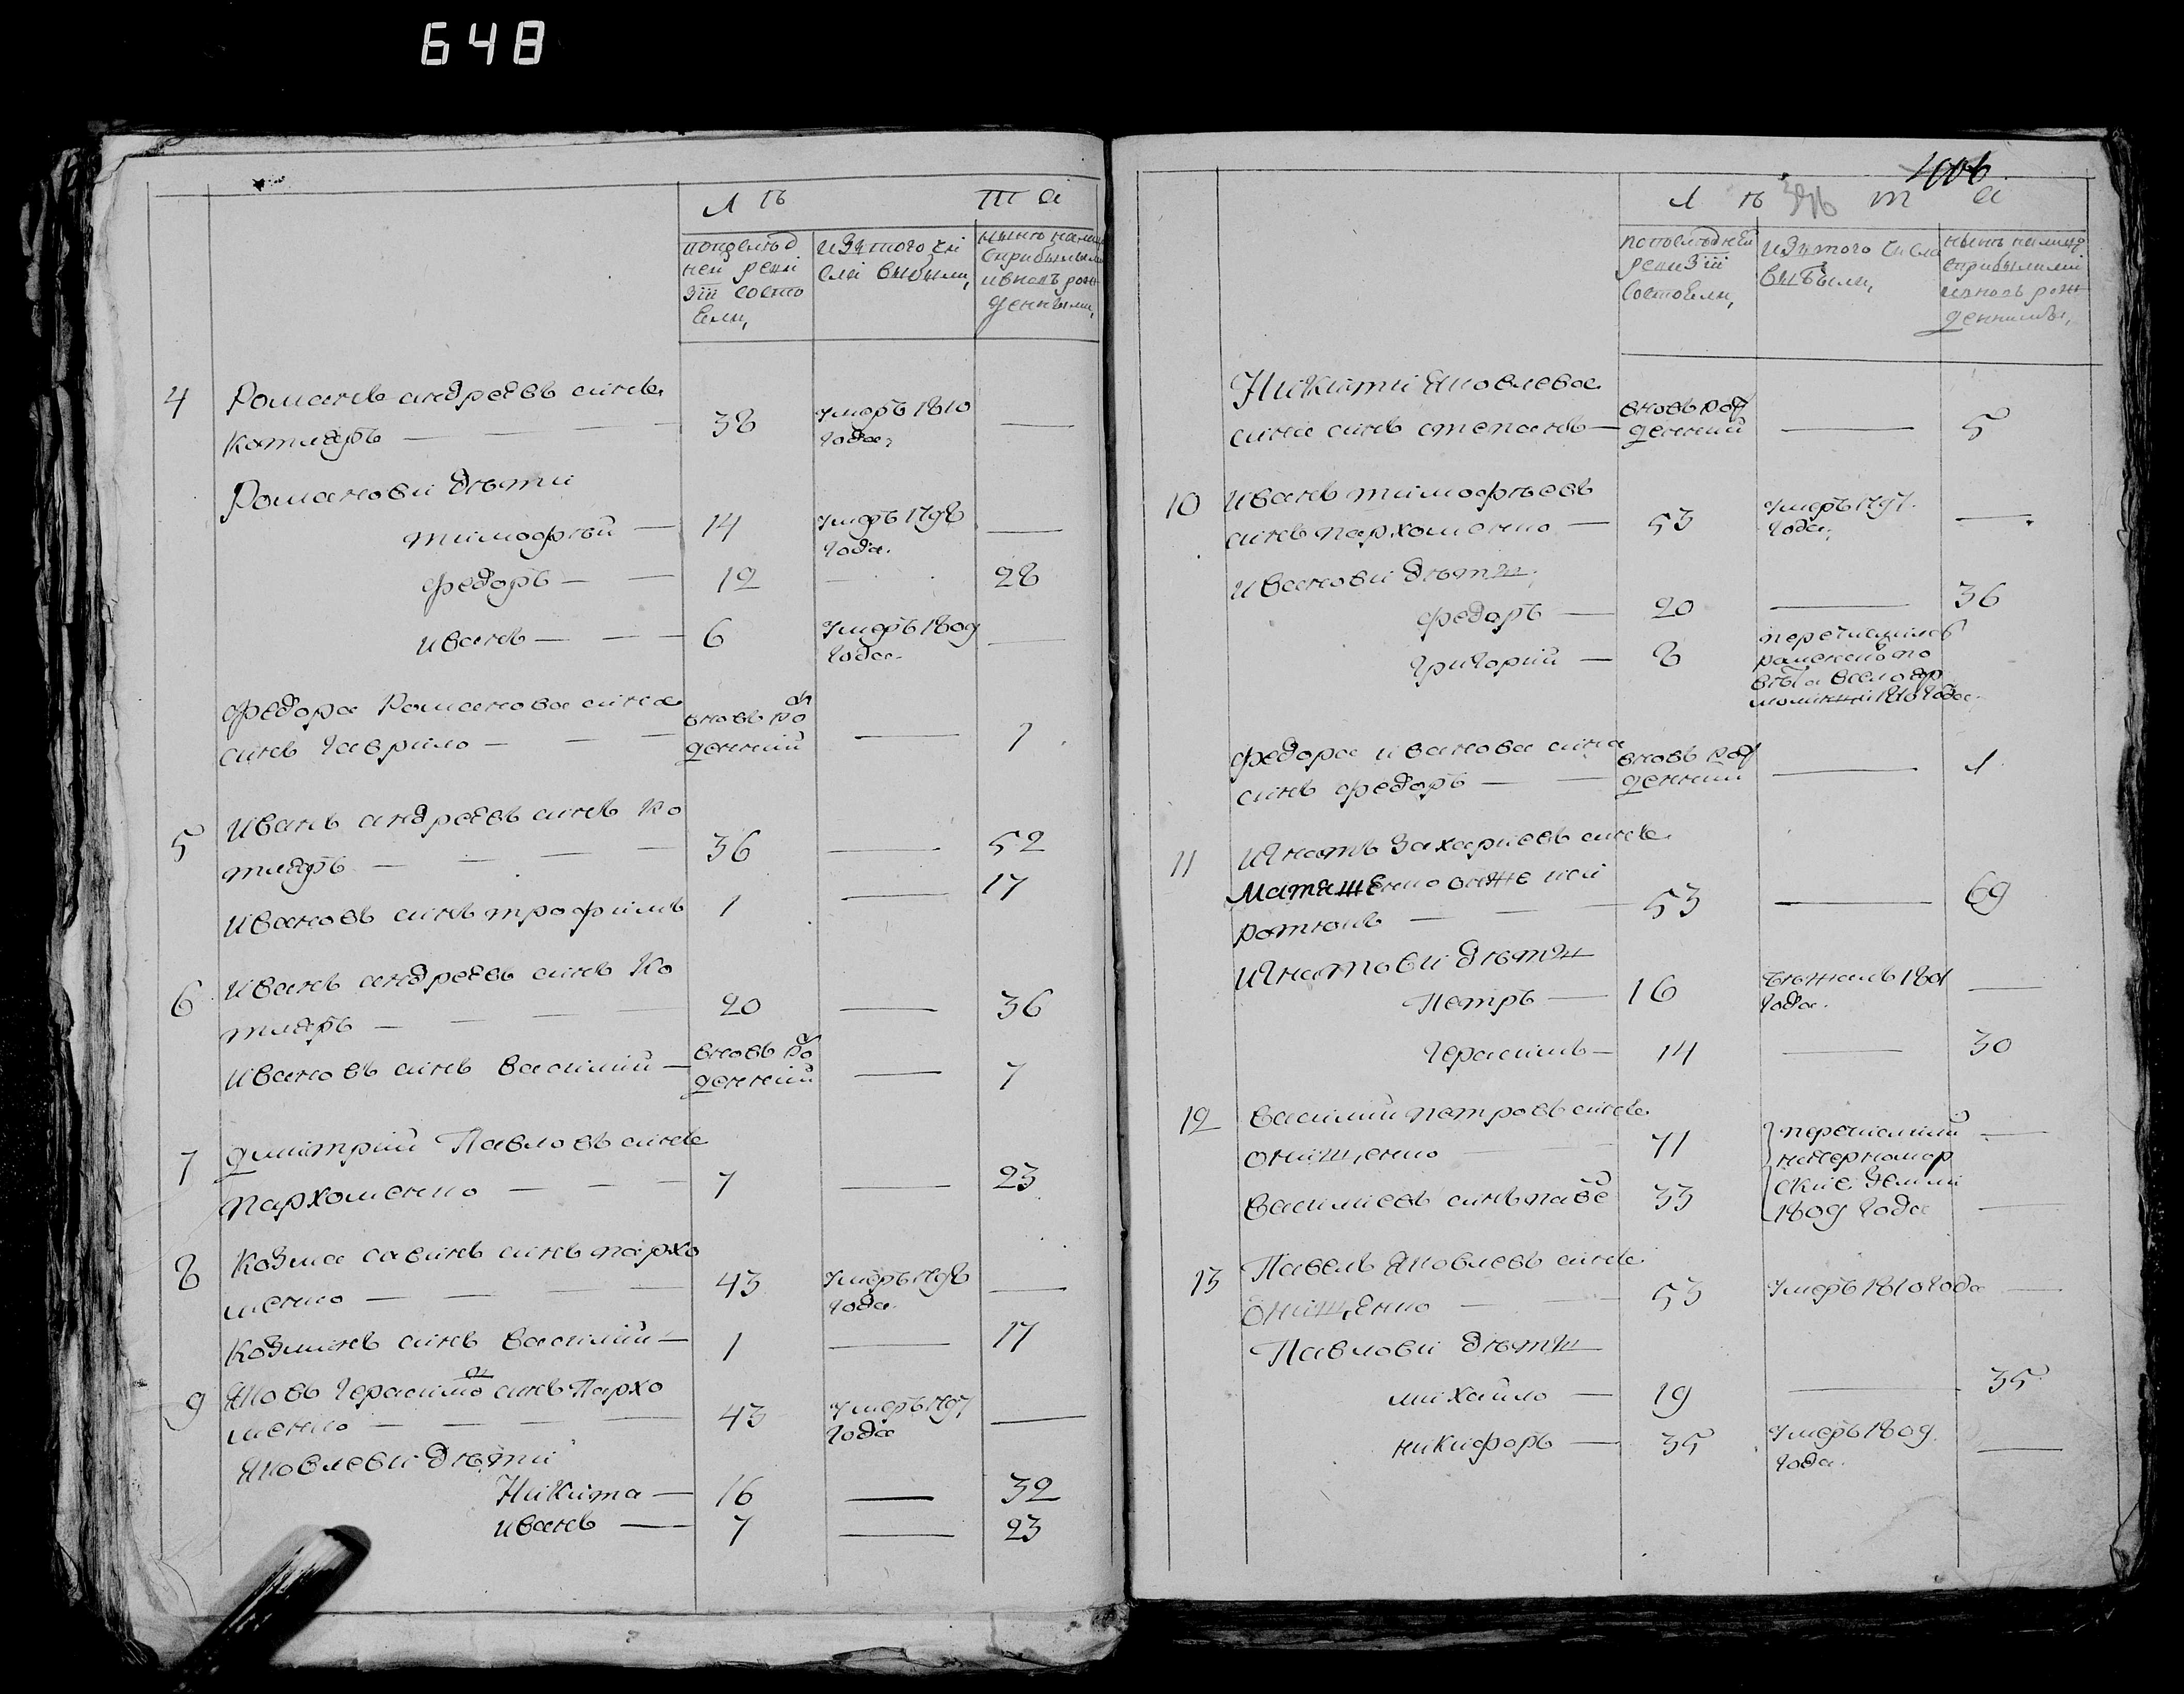 648
лѣ та
попослѣд
ней реви
зіи состо
яли,
изътого чи
сла выбыли,
нынѣ налицо
сприбылыми
ивновь рож
денными,
4 Романъ андреевъ синъ
котляръ — — — 38 умеръ 1810 —
года,
Романови дѣти
тимофѣй — 14 умеръ 1798 —
года.
федоръ — — 12 — 28
иванъ — — — 6 умеръ 1809 —
года.
федора Романова сина вновь рож
синъ гаврило — — — денний — 1
5 иванъ андреевъ синъ Ко
тляръ — — — — 36 — 52
ивановъ синъ трофимъ 1 — 17
6 иванъ андреевъ синъ Ко
тляръ — — — — 20 — 36
ивановъ синъ василий — вновь рож
денний — 7
7 димитрий Павловъ синъ
пархоменко — — — 7 — 23
8 козма савинъ синъ пархо
менко — — — — 43 умеръ 1798 —
года.
козминъ синъ василий — 1 — 17
9 Яковъ герасимовъ синъ Пархо
менко — — — — 43 умеръ 1797 —
года
Яковлеви дѣти
Никита — 16 — 32
иванъ — 7 — 23
400б
396
л ѣ т а
попослѣдней
ревизіи
состояли,
изътого числа
выбыли,
нынѣ налицо
сприбылими
ивновь рож
денними,
Никити Яковлева
сина синъ степанъ — вновь рож
денний — 5
10 иванъ тимофѣевъ
синъ пархоменко — 53 умеръ 1797. —
года,
ивановы дѣти
федоръ — 20 — 36
григорий — 8
1810 года.
федора иванова сина вновь рож
синъ федоръ — — денний — 1
11 игнатъ захариевъ синъ
Матяшенко онже
— — — 53 — 69
игнатови дѣти
петръ — 16 бѣжалъ 1801 —
года.
герасимъ — 14 — 30
12 василий петровъ синъ
онищенко — — 71 перечислний —
начерномор
василиевъ синъ павѣ 33 ские земли —
1809 года
13 Павелъ Яковлевъ синъ
онищенко — — 53 умеръ 1810 года —
Павлови дѣти
михайло — 19 — 35
никифоръ — 35 умеръ 1809. —
года.